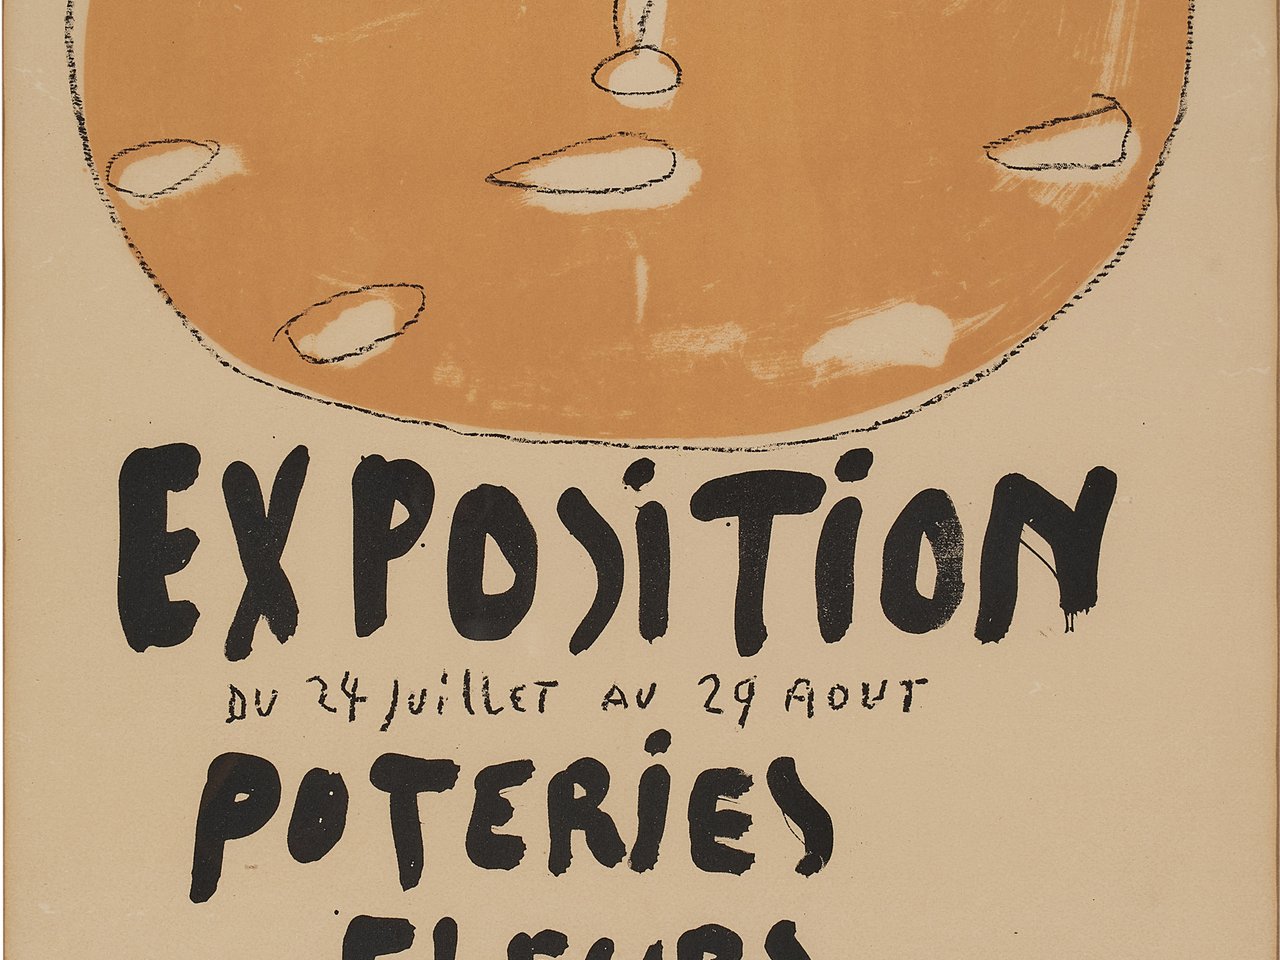 EXPOSITION
DU 24 JUiLLET AU 29 AOUT
POTERiES
FLEURS